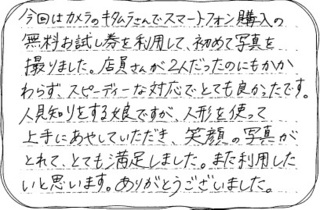 今回はカメラのキタムラさんでスマートフォン購入の
無料お試し券を利用して、初めて写真を
撮りました。店員さんが2人だったのにもかか
わらず、スピーディーな対応でとても良かったです。
人見知りをする娘ですが、人形を使って
上手にあやしていただき、笑顔の写真が
とれて、とても満足しました。また利用した
いと思います。ありがとうございました。